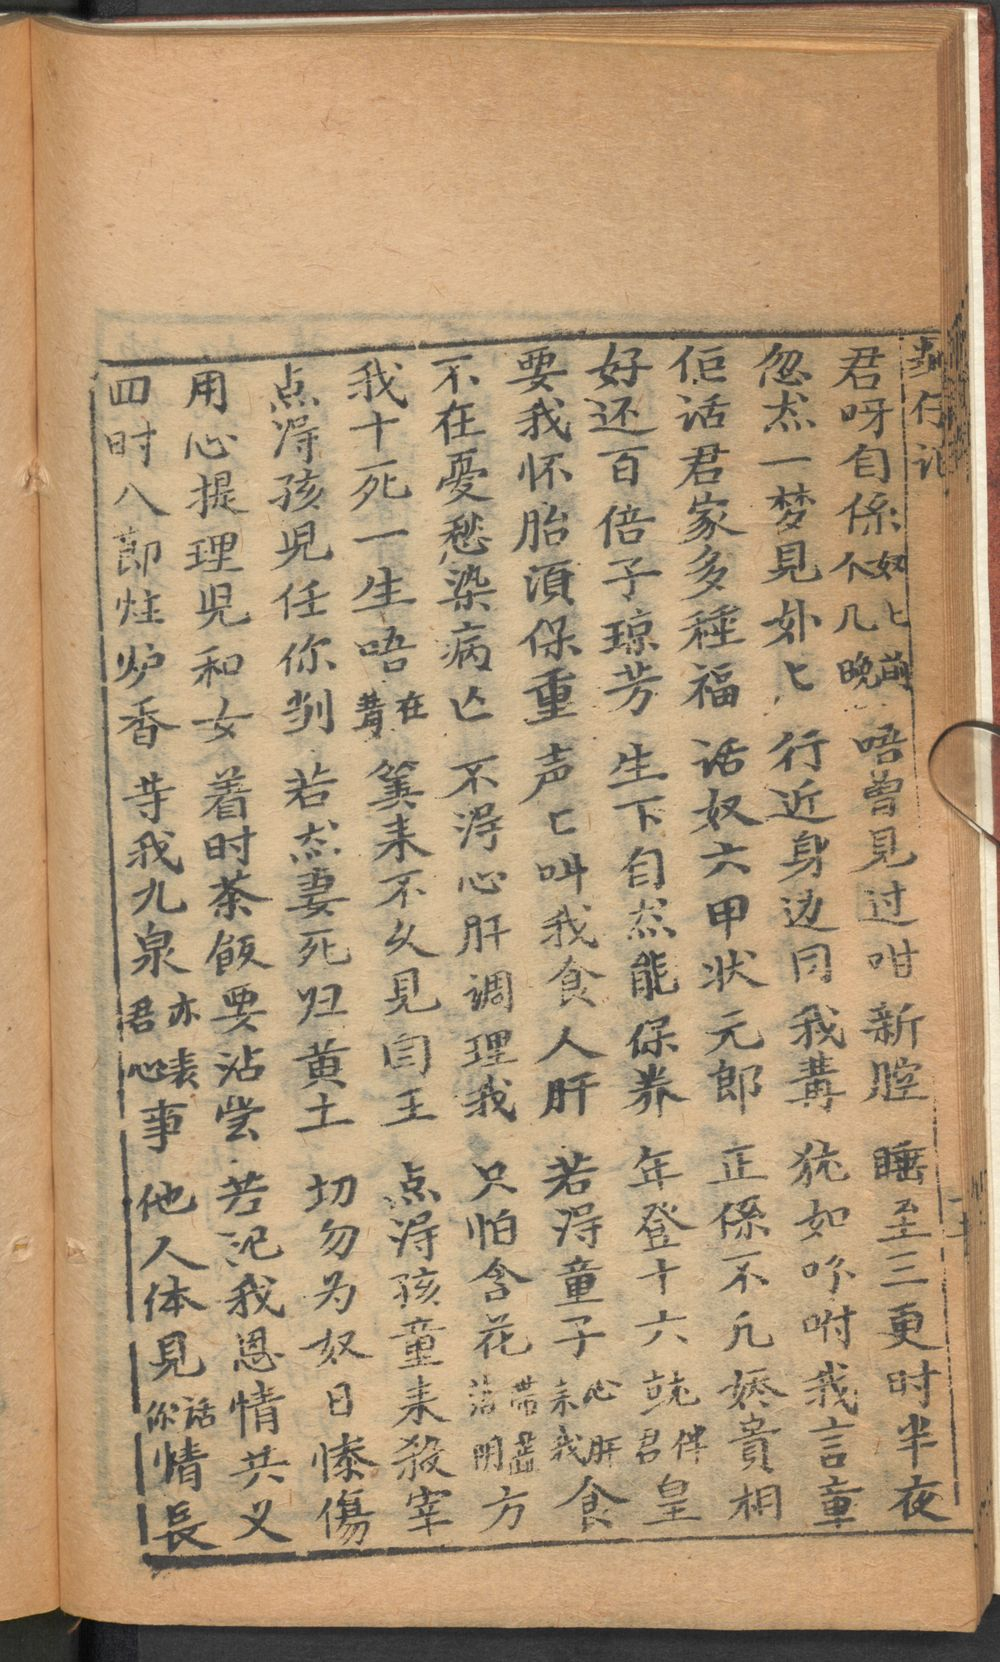 君呀自係奴匕前个几晚唔曾見过咁新腔睡至三更时半夜
忽然一梦見外匕行近身边同我講犹如吩咐我言章
佢话君家多種福话奴六甲状元郎正係不凢娇貴相
好还百倍子琼芳生下自然能保养年登十六就伴君皇
要我怀胎湏保重声匕叫我食人肝若淂童子心肝来我食
不在憂愁染病亾不淂心肝调理我只怕含花帶蕋落阴方
我十死一生唔在講筭来不久見闫王点淂孩童来殺宰
点淂孩児任你刋若然妻死归黄土切勿为奴日愫傷
用心提理児和女着时茶飯要沾尝若记我恩情共义
四时八節炷炉香等我九泉亦表君心事他人体見话你情長